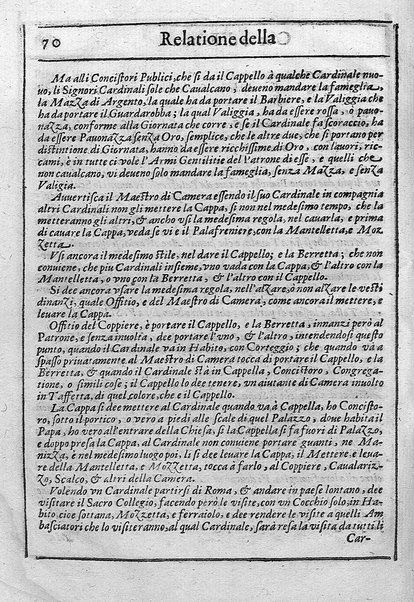 70 Relatione della
Ma alli Concistori Publici, che si da il Cappello à qualche Cardinale nuo-
uo, li Signori Cardinali sole che Caualcano, deueno mandare la fameglia,
la Mazza di Argento, la quale ha da portare il Barbiere, e la Valiggia che
ha da portare il Guardarobba; la qual Valiggia, ha da essere rossa, ò pauo-
nazza, conforme alla Giornata che corre, e se il Cardinale fa scoraccio, ha
da essere Pauonazza senza Oro, semplice, che le altre due, che si portano per
distintione di Giornata, hanno da essere ricchissime di Oro, con lauori, ric-
cami, è in tutte ci vole l'Armi Gentilitie del Patrone di esse, e quelli che
non caualcano, vi deueno solo mandare la fameglia, senza Mazza, e senza
Valigia.
Auuertisca il Maestro di Camera essendo il suo Cardinale in compagnia
altri Cardinali non gli mettere la Cappa, si non nel medesimo tempo, che la
metteranno gli altri, & ancho vsi la medesima regola, nel cauarla, e prima
di cauare la Cappa, veda se vi è il Palafreniere, con la Mantelletta, e Moz
zetta.
Vsi ancora il medesimo stile, nel dare il Cappello; e la Berretta; che non
conuiene, che piu Cardinali insieme, vno vada con la Cappa, & l'altro con la
Mantelletta, o vno con la Berretta, & l'altro con il Cappello.
Si dee ancora vsare la medesima regola, nell'alzare, ò non alzare le vesti
dinanzi, quale Offitio, e del Maestro di Camera, come ancora il mettere, e
leuare la Cappa.
Offitio del Coppiere, è portare il Cappello, e la Berretta, innanzi però al
Patrone, e senza inuolta, dee portare l'vno, & l'altro, intendendosi questo
punto, quando il Cardinale va in habito, con Corteggio; che quando và a
spasso priuatamente al Maestro di Camera tocca di portare il Cappello, e la
Berretta, & quando il Cardinale stà in Cappella, Concistoro, Congrega-
tione, o simili cose; il Cappello lo dee tenere, vn aiutante di Camera inuolto
in Taffetta, di quel colore, che e il Cappello.
La Cappa si dee mettere al Cardinale quando va à Cappella, ho Concisto-
ro, sotto il portico, o vero a piedi alle scale di quel Palazzo, doue habita il
Papa, ho vero all'entrare della Chiesa, si la Cappella si fa fuori di Palazzo,
e doppo presa la Cappa, al Cardinale non conuiene portare guanti, ne Ma-
nizza, e nel medesimo luogo poi, li si dee leuare la Cappa, il Mettere e leua-
re della Mantelletta, e Mozzetta, tocca à farlo, al Coppiere, Caualariz-
zo, Scalco, & altri della Camera.
Volendo vn Cardinale partirsi di Roma, & andare in paese lontano, dee
visitare il Sacro Collegio, facendo però le visite, con vn Cocchio solo, in Ha-
bito, cioe sottana, Mozzetta, e ferraiolo, e dee rendere le visite a quelli Am
basciatori che lo visiteranno, al qual Cardinale, sarà resa la visita da tutti li
Car-